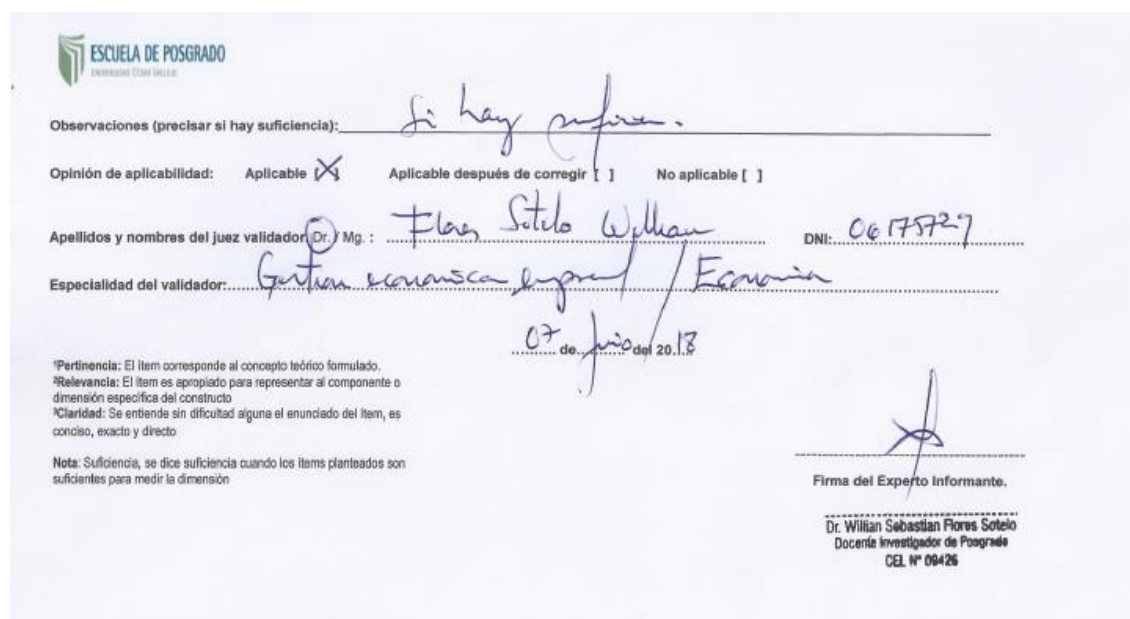 ESCUELA DE POSGRADO
UNIVERSIDAD CÉSAR VALLEJO
Observaciones (precisar si hay suficiencia): Si hay
Opinión de aplicabilidad: Aplicable [X] Aplicable después de corregir [ ] No aplicable [ ]
Apellidos y nombres del juez validador Dr. / Mg. : Flores Sotelo Willian DNI: 06175729
Especialidad del validador: Gestion economica / Economia
07 de Junio del 2018
¹Pertinencia: El ítem corresponde al concepto teórico formulado.
²Relevancia: El ítem es apropiado para representar al componente o
dimensión específica del constructo
³Claridad: Se entiende sin dificultad alguna el enunciado del ítem, es
conciso, exacto y directo
Nota: Suficiencia, se dice suficiencia cuando los ítems planteados son
suficientes para medir la dimensión
Firma del Experto Informante.
Dr. Willian Sebastian Flores Sotelo
Docente Investigador de Posgrado
CEL N° 09426